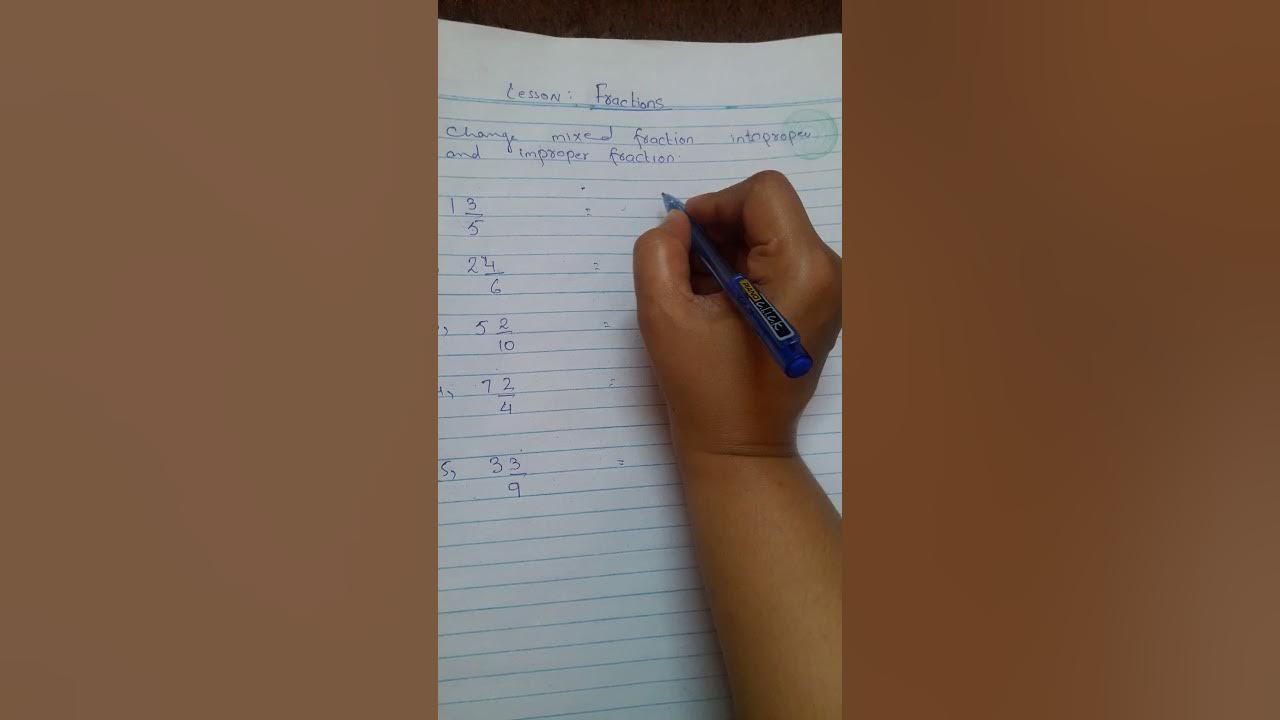 Lesson: Fractions
Change mixed fraction into proper
and improper fraction.
1 3/5 =
2 4/6 =
, 5 2/10 =
, 7 2/4 =
5, 3 3/9 =
click